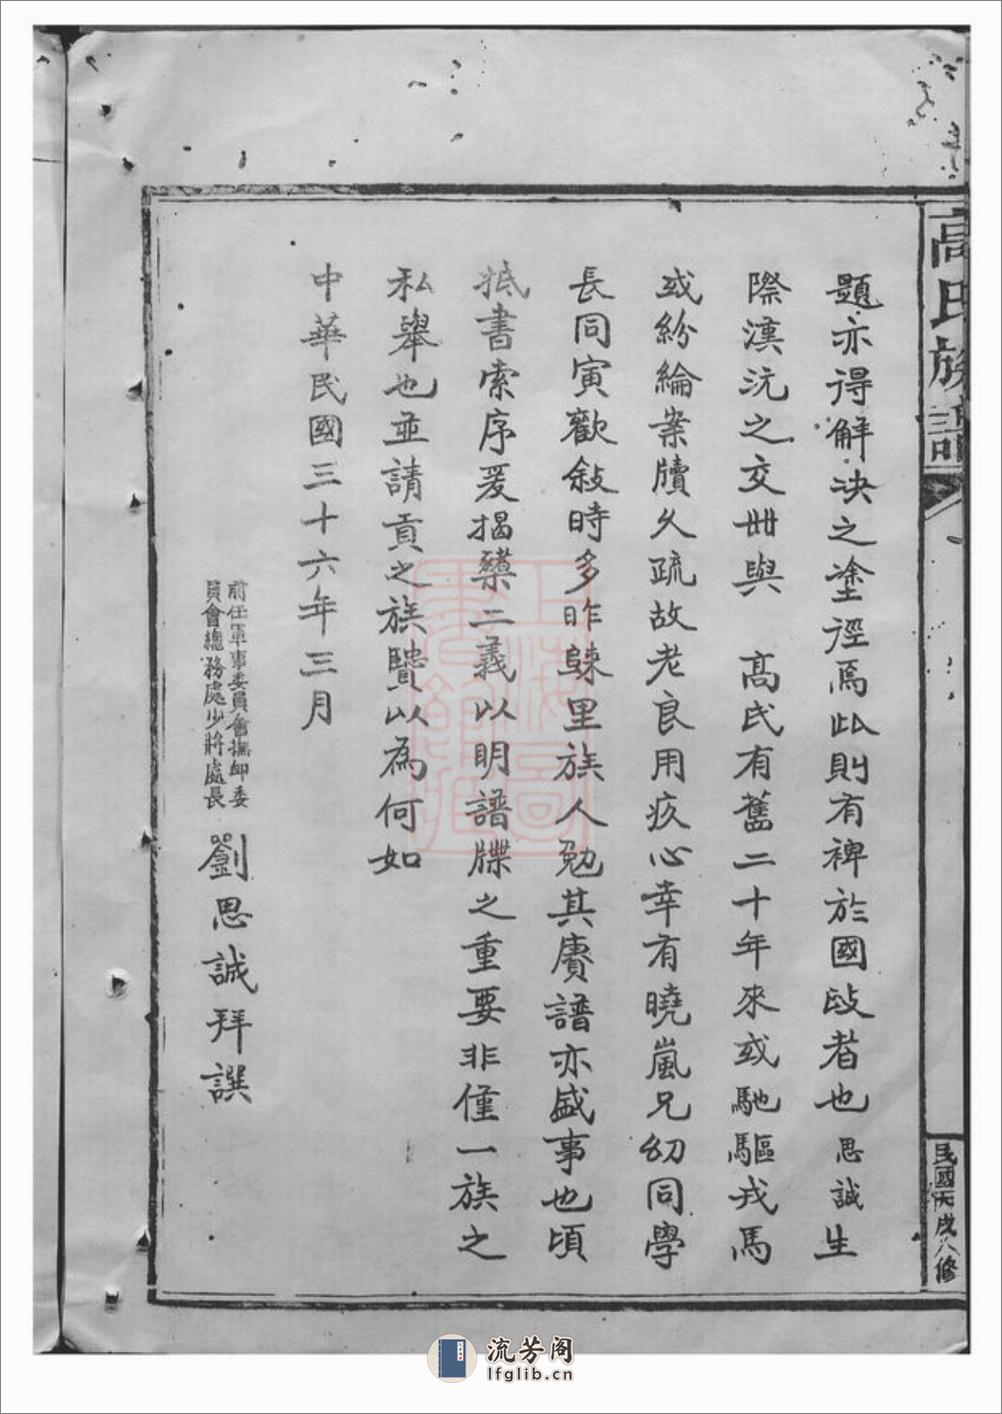 高氏族譜
民國丙戌八修
題亦得解決之塗徑焉此則有裨於國政者也思誠生
際漢沅之交世與 高氏有舊二十年來或馳驅戎馬
或紛綸案牘久疏故老良用疚心幸有曉嵐兄幼同學
長同寅歡敍時多昨歸里族人勉其賡譜亦盛事也頃
抵書索序爰揭櫫二義以明譜牒之重要非僅一族之
私舉也並請貢之族賢以為何如
中華民國三十六年三月
前任軍事委員會撫卹委
員會總務處少將處長
劉思誠拜譔
流芳阁
lfglib.cn